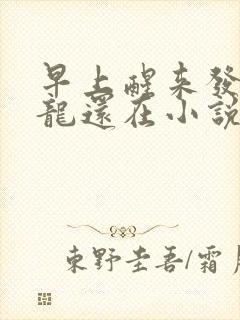 早上醒來發
龍還在小說
東野圭吾/霜月